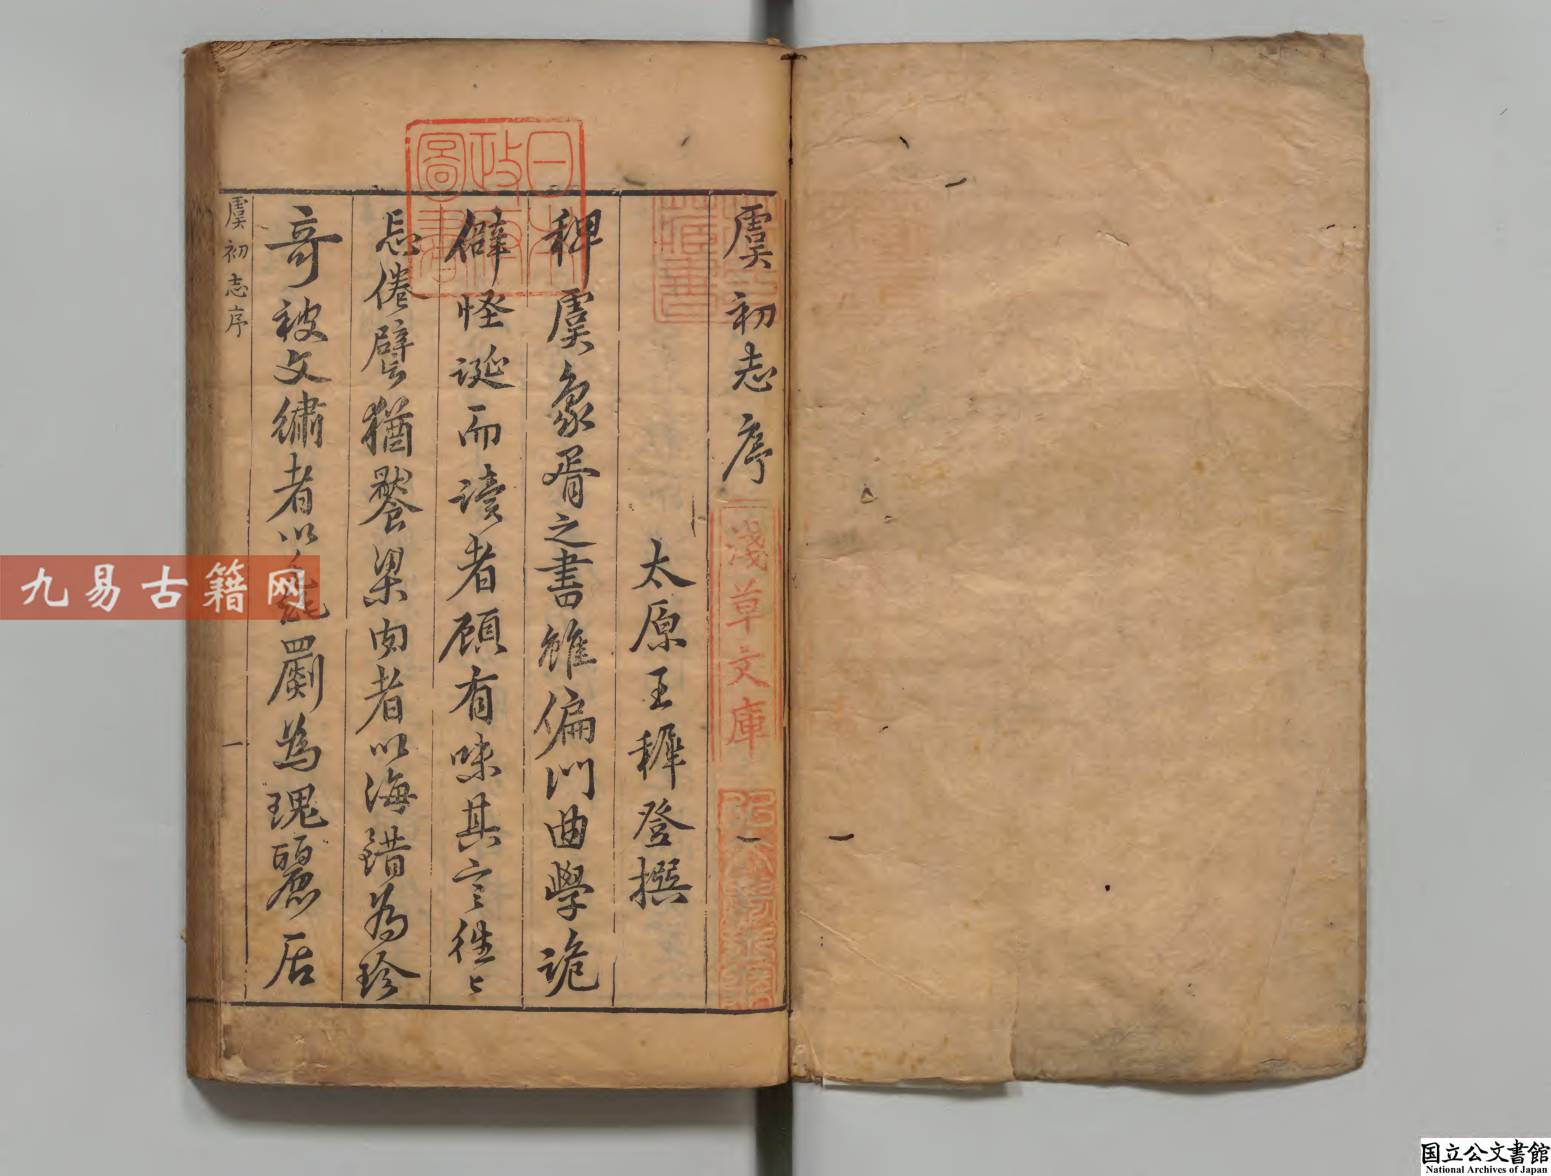 虞初志序
太原王穉登撰
稗虞象胥之書雖偏門曲學詭
僻怪誕而讀者顧有味其言往〻
忘倦譬猶饜粱肉者以海錯為珍
竒被文繡者以罽為瑰麗居
虞初志序
一
日本政府圖書
淺草文庫
九易古籍网
国立公文書館
National Archives of Japan